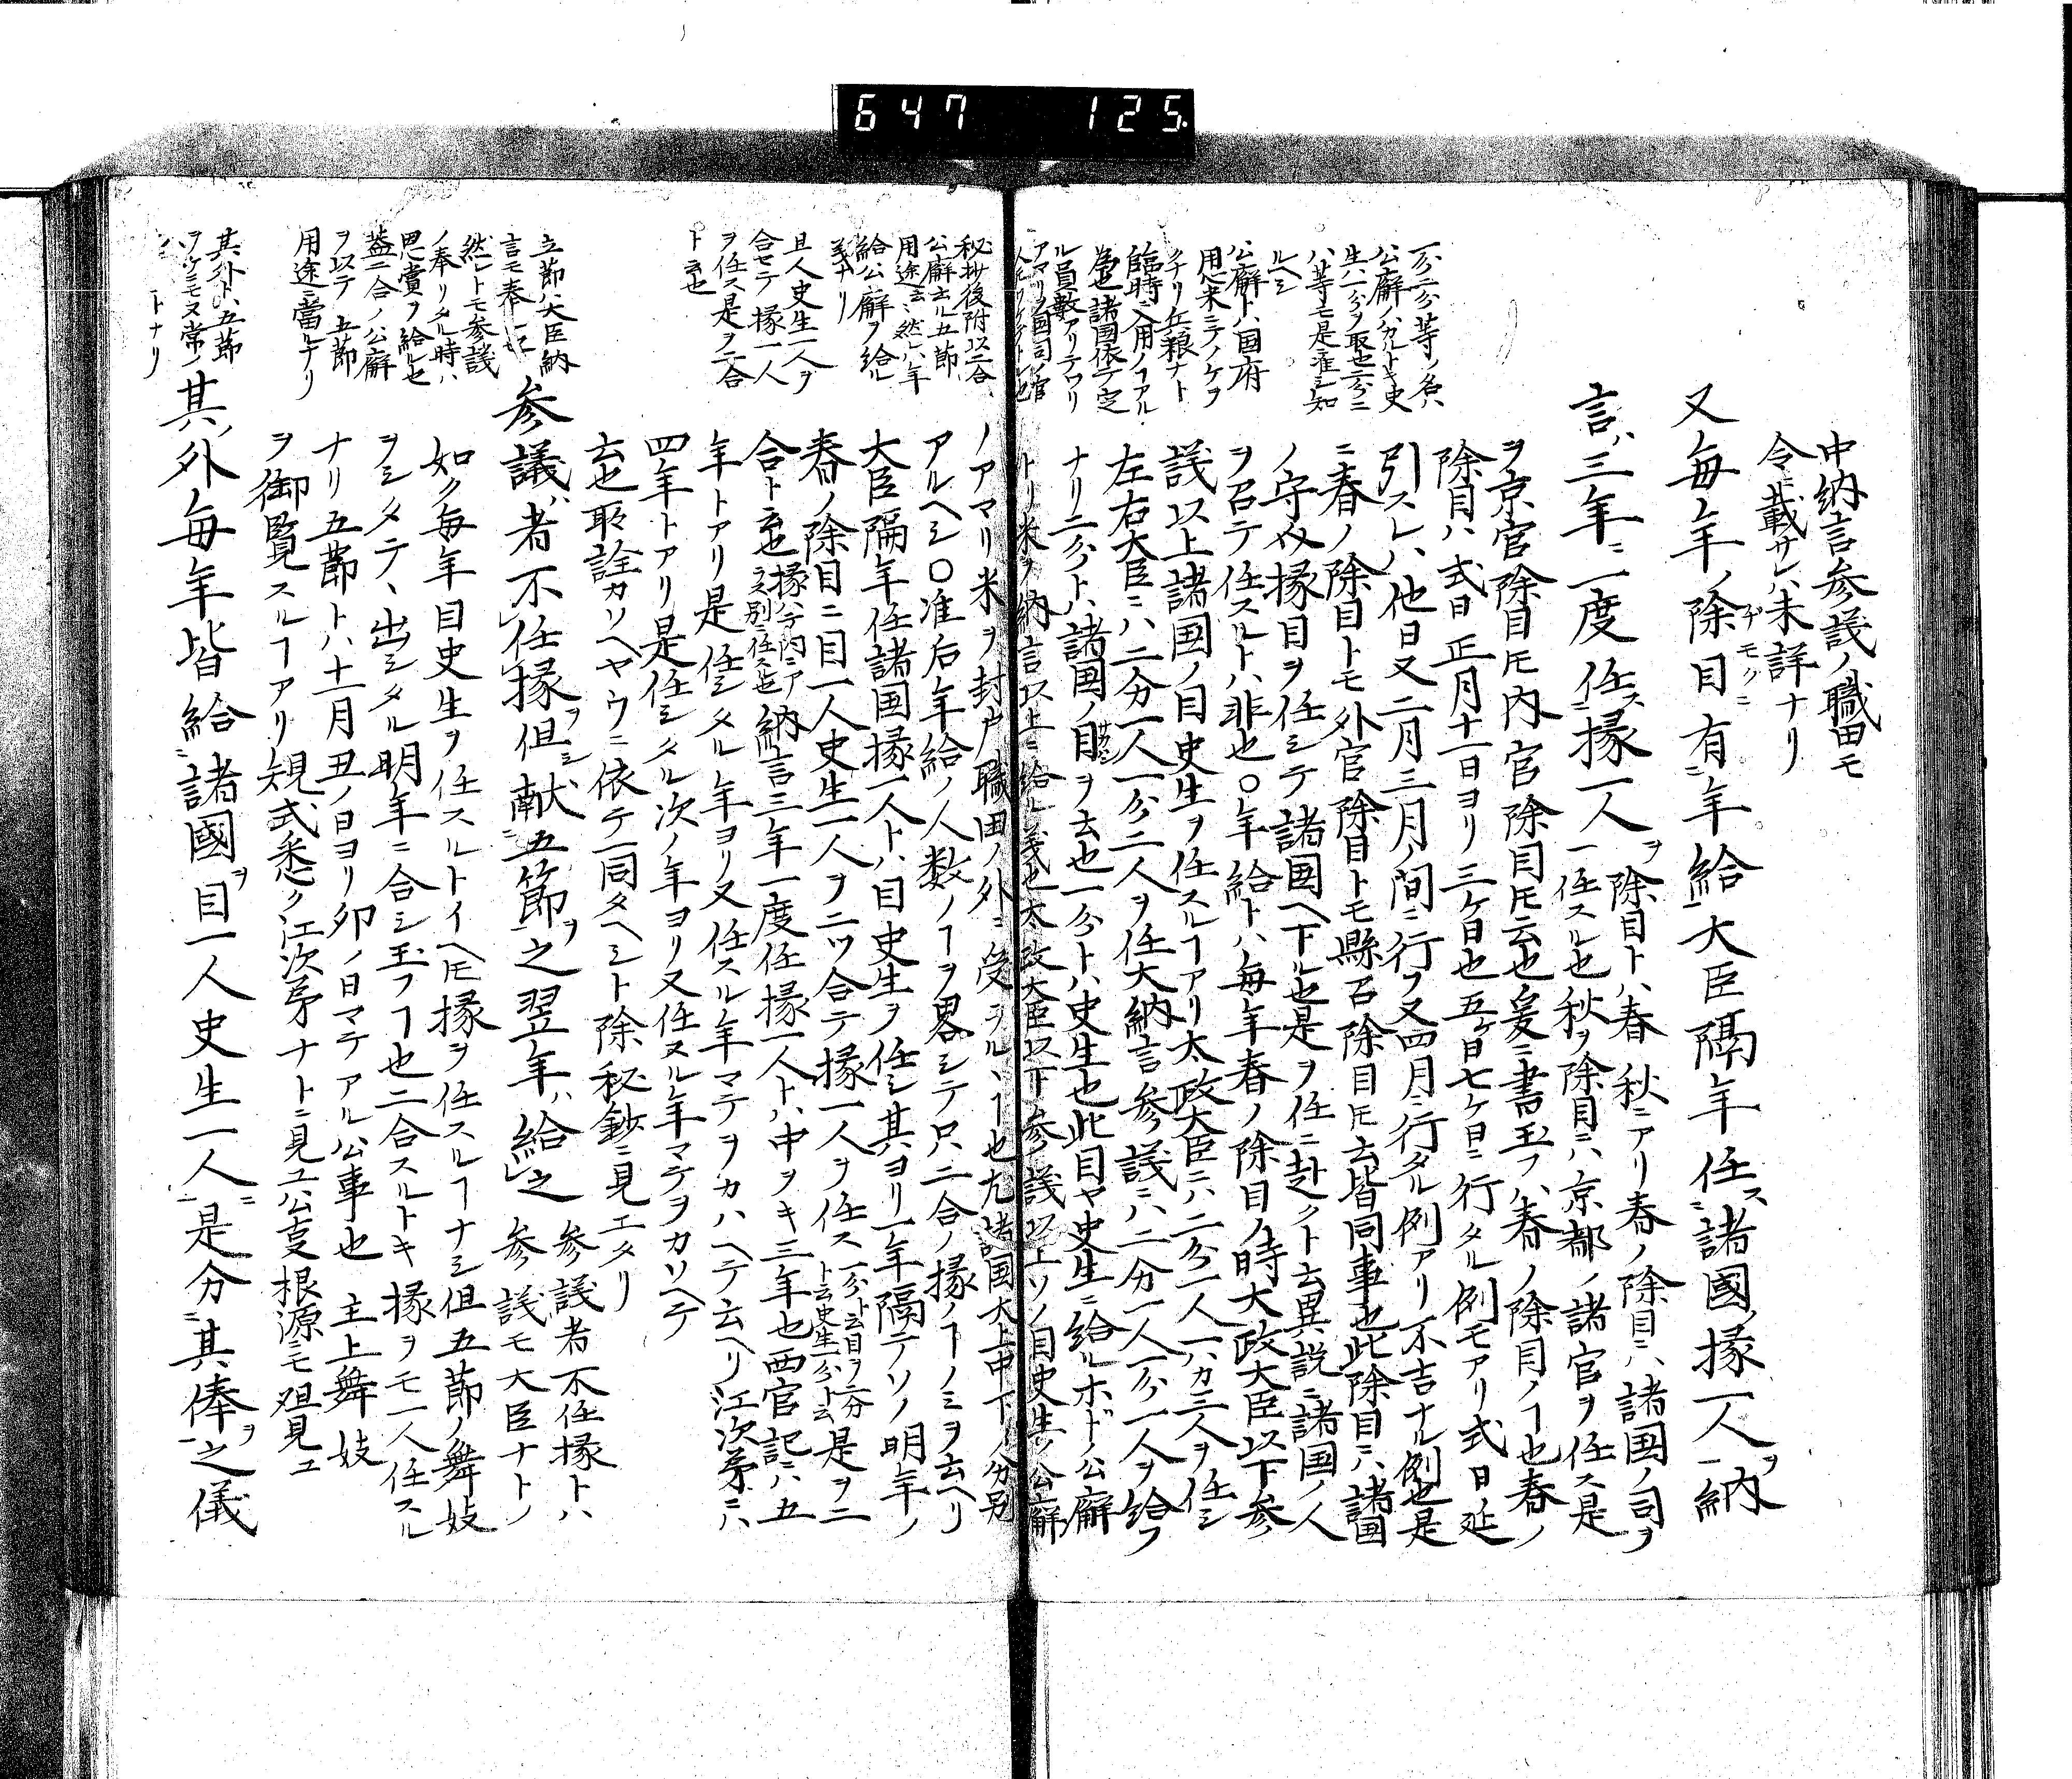 647 125
中納言参議ノ職田モ
令ニ載サレハ未詳ナリ
又毎年ノ除目有年給大臣隔年任ス諸國ノ掾一人ヲ納
言ハ三年ニ一度任ス掾一人ヲ除目トハ春秋ニアリ春ノ除目ニハ諸国ノ司ヲ
任スル也秋ヲ除目ニハ京都ノ諸官ヲ任ス是
ヲ京官除目トモ内官除目トモ云也爰ニ書玉フハ春ノ除目ノ㆑也春ノ
除目ハ式日正月十一日ヨリ三ケ日也五ケ日七ケ日ニ行タル例モアリ式日延
引スレハ他日又二月三月ノ間ニ行フ又四月ニ行タル例アリ不吉ナル例也是
ニ春ノ除目トモ外官除目トモ縣召除目トモ云皆同事也此除目ニハ諸国
ノ守介掾目ヲ任シテ諸国ヘ下ル也是ヲ任ニ赴クト云異説ニ諸国ノ人
ヲ召テ任スルトハ非也〇年給トハ毎年春ノ除目ノ時大政大臣以下参
議以上諸国ノ目史生ヲ任スルヿアリ太政大臣ニハ二分一人一八カ三人ヲ任シ
左右大臣ニハ二分一人一分二人ヲ任大納言参議ニハ二分一人一分一人ヲ給フ
ナリ二分トハ諸国ノ目ヲ云也一分トハ史生也此目ヤ史生ニ給ルホドノ公廨
トリ米ヲ納言以上ニ給ル義也太政大臣以下参議以上ソノ目史生ノ公廨
一分二分等ノ名ハ
公廨ノハカルトキ史
生ハ一分ヲ取也二分三
ハ等モ是ニ准シ知
ルヘシ
公廨トハ国府
用之米ニテノケヲ
クナリ兵粮ナト
臨時ニ入用ノヿアル
為也諸國依テ定
ル員數アリテワリ
アマリヲ国司ノ官
ノアマリ米ヲ封戸職田ノ外ニ受ラルヽヿ也九諸国大上中下ノ分別
アルヘシ〇准后年給ノ人数ノヿヲ畧シテ只二合ノ掾ノヿノミヲ云ヘリ
大臣隔年任諸国掾一人トハ目史生ヲ任シ其ヨリ一年隔テソノ明年ノ
春ノ除目ニ目一人史生一人ヲ二ツ合テ掾一人ヲ任ス一分ト云目ヲ二分
ト云史生一分ト云是ヲ二
合ト云也掾ハ今内ニア
ラス別ニ任ス也納言三年一度任掾一人トハ中ヲキ三年也西宮記ニハ五
年トアリ是任シタル年ヨリ又任スル年マテヲカハヘテ云ヘリ江次㐧ニハ
四年トアリ是任シタル次ノ年ヨリ又任スル年マテヲカソヘテ
云也取詮カソヘヤウニ依テ一同タヘシト除秘鈔ニ見エタリ
参議ハ者不任掾ヲ但シ献五節ヲ之翌年ハ給之参議者不任掾トハ
参議モ大臣ナトノ
如ク毎年目史生ヲ任スルトイヘトモ掾ヲ任スルヿナシ但五節ノ舞妓
ヲシタテヽ出シタル明年ニ合シ玉フヿ也二合スルトキ掾ヲモ一人任スル
ナリ五節トハ十一月丑ノ日ヨリ卯ノ日マテアル公事也主上舞妓
ヲ御覧スルヿアリ規式悉ク江次㐧ナトニ見ユ公㕝根源ニモ粗見ユ
其外毎年皆給諸國ヲ目一人史生一人ニ是分其俸ヲ之儀
秘抄後附以二合
公廨ニ云ル五節
用途云々然レハ年
給公廨ヲ給ル
義ナリ
且人史生一人ヲ
合セテ掾一人
ヲ任ス是ヲ二合
ト云也
五節ハ大臣納
言モ奉
然レトモ参議
ノ奉リタル時ハ
恩賞ヲ給ル也
蓋二合ノ公廨
ヲ以テ五節
用途ニ當ルナリ
其外トハ五節
トナリ